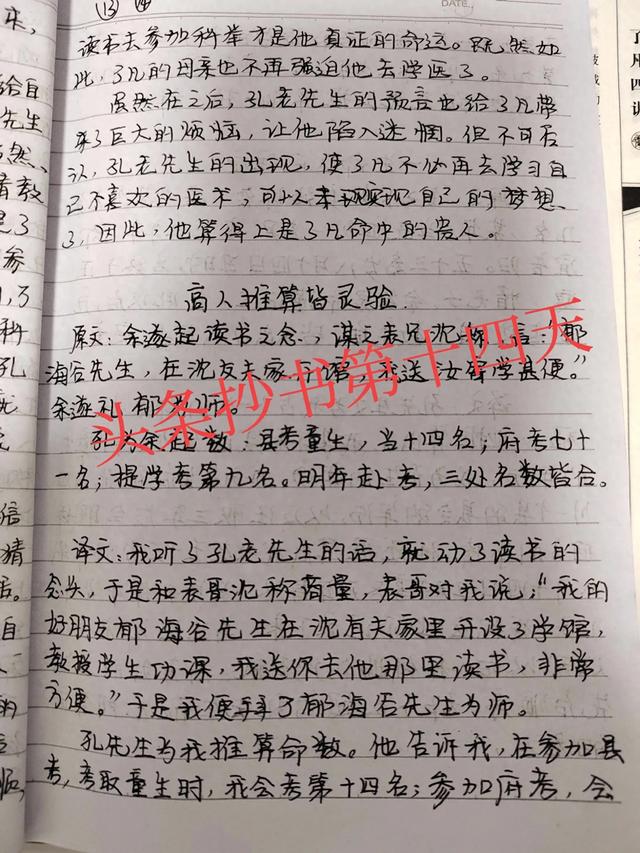 ⑬ 四
DATE
读书去参加科举才是他真证的命运。既然如
此,了凡的母亲也不再强迫他去学医了。
虽然在之后,孔老先生的预言也给了凡带
来了巨大的烦恼,让他陷入迷惘。但不可否
认,孔老先生的出现,使了凡不必再去学习自
己不喜欢的医术,可以来现实现自己的梦想
了,因此,他算得上是了凡命中的贵人。
高人推算皆灵验
原文:余遂起读书之念,谋之表兄沈称,言:"郁
海谷先生,在沈友夫家 我送汝寄学甚便。"
余遂礼郁为师。
孔为余起数:县考童生,当十四名;府考七十
一名;提学考第九名。明年赴考,三处名数皆合。
头条抄书第十四天
译文:我听了孔老先生的话,就动了读书的
念头,于是和表哥沈称商量,表哥对我说,"我的
好朋友郁海谷先生在沈有夫家里开设了学馆,
教授学生功课,我送你去他那里读书,非常
方便。"于是我便拜了郁海谷先生为师。
孔先生与我推算命数。他告诉我,在参加县
考,考取童生时,我会考第十四名;参加府考,会